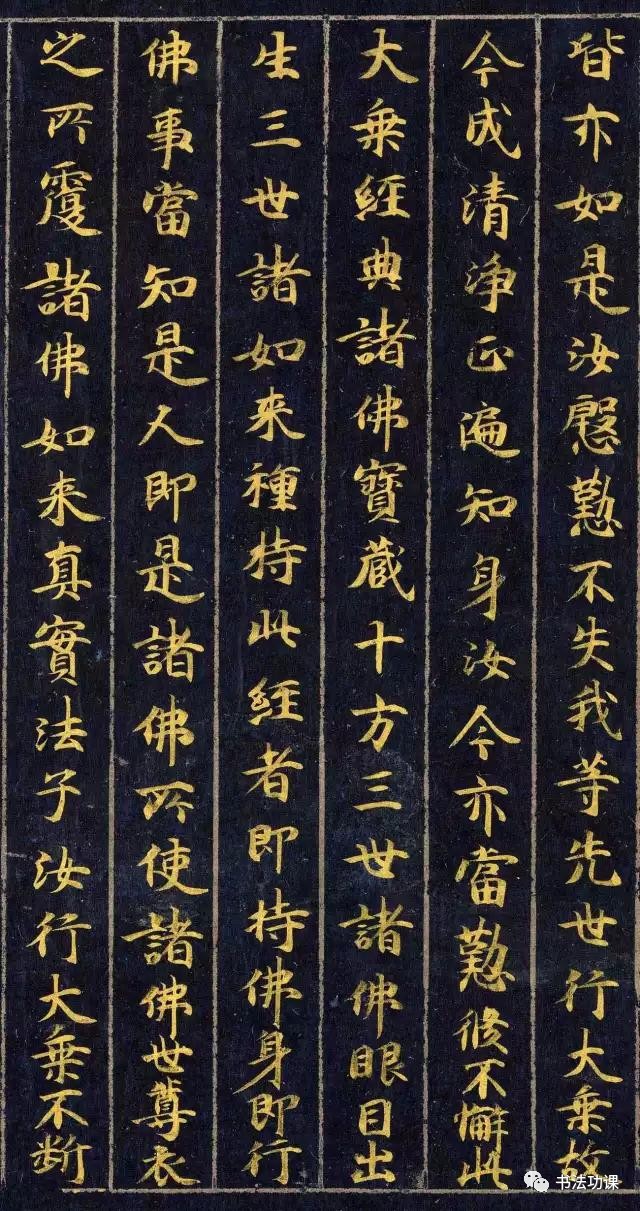 皆亦如是汝慇懃不失我等先世行大乘故
今成清淨正遍知身汝今亦當懃修不懈此
大乘經典諸佛寶藏十方三世諸佛眼目出
生三世諸如来種持此經者即持佛身即行
佛事當知是人即是諸佛所使諸佛世尊衣
之所覆諸佛如来真實法子汝行大乘不断
书法功课